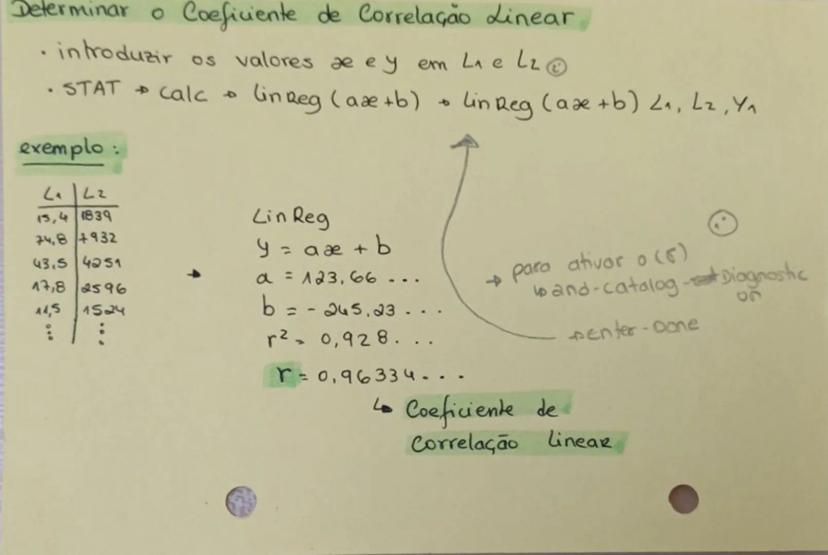 Determinar o Coeficiente de Correlação Linear
• introduzir os valores x e y em L1 e L2
• STAT → calc → LinReg (ax+b) → LinReg (ax+b) L1, L2, Y1
exemplo:
L1 | L2
15,4 | 1839
74,8 | 7932
43,5 | 4251
17,8 | 2596
11,5 | 1524
⋮ | ⋮
→
LinReg
y = ax + b
a = 123,66 ...
b = - 245,23 ...
r² = 0,928 ...
r = 0,96334 ...
↳ Coeficiente de
Correlação Linear
→ para ativar o (r)
↳ 2nd-catalog- Diagnostic
on
→ enter-Done